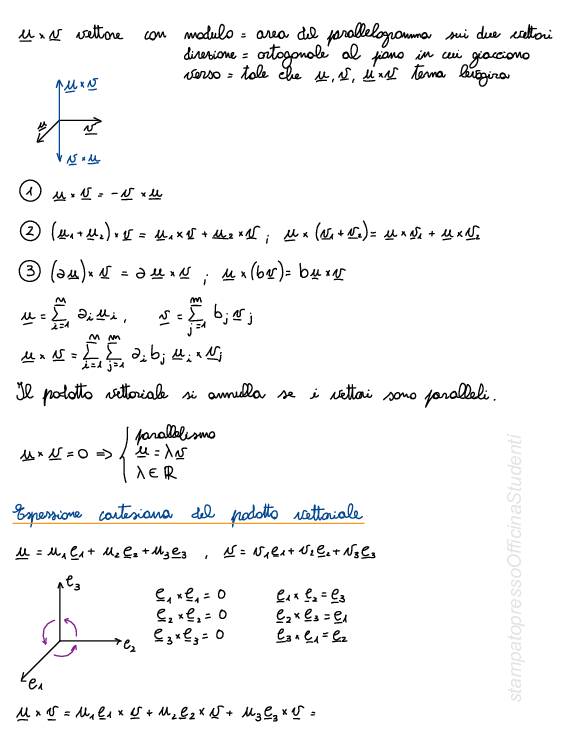 u × v vettore con modulo = area del parallelogramma sui due vettori
direzione = ortogonale al piano in cui giacciono
verso = tale che u, v, u × v terna levogira
u × v
u
v
v × u
① u × v = - v × u
② (u₁ + u₂) × v = u₁ × v + u₂ × v ; u × (v₁ + v₂) = u × v₁ + u × v₂
③ (au) × v = a u × v ; u × (bv) = b u × v
u = ∑ᵢ₌₁ⁿ aᵢ uᵢ , v = ∑ⱼ₌₁ᵐ bⱼ vⱼ
u × v = ∑ᵢ₌₁ⁿ ∑ⱼ₌₁ᵐ aᵢ bⱼ uᵢ × vⱼ
Il podotto vettoriale si annulla se i vettori sono paralleli.
parallelismo
u × v = 0 => { u = λv
λ ∈ ℝ
Espressione cartesiana del podotto vettoriale
u = u₁e₁ + u₂e₂ + u₃e₃ , v = v₁e₁ + v₂e₂ + v₃e₃
e₃
e₂
e₁
e₁ × e₁ = 0 e₁ × e₂ = e₃
e₂ × e₂ = 0 e₂ × e₃ = e₁
e₃ × e₃ = 0 e₃ × e₁ = e₂
u × v = u₁e₁ × v + u₂e₂ × v + u₃e₃ × v =
stampatopressoOfficinaStudenti